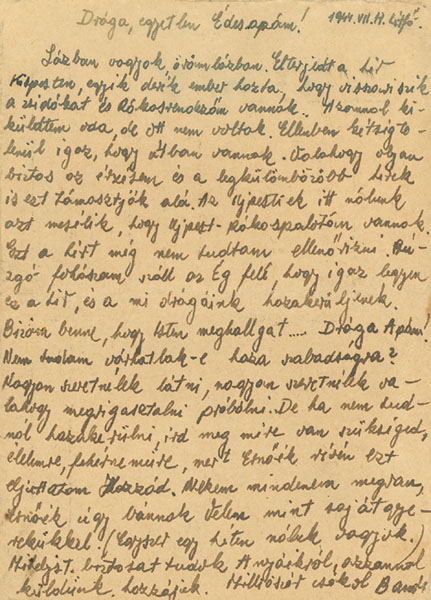 Drága, egyetlen Édesapám! 1944. VII. 17. hétfő.
Lázban vagyok örömlázban. Elterjedt a hír
Kispesten, egyik derék ember hozta, hogy visszaviszik
a zsidókat és Rákosrendezőn vannak. Azonnal ki-
küldtem oda, de ott nem voltak. Ellenben kétségte-
lenül igaz, hogy útban vannak. Valahogy olyan
biztos az érzésem és a legkülömbözőbb hírek
is ezt támasztják alá. Az újpestiek itt nálunk
azt mesélik, hogy Újpest-Rákospalotán vannak.
Ezt a hírt még nem tudtam ellenőrizni. Bu-
zgó fohászom száll az Ég felé, hogy igaz legyen
ez a hír, és a mi drágáink hazakerüljenek.
Bízom benne, hogy Isten meghallgat..... Drága Apám!
Nem tudom várhatlak-e haza szabadságra?
Nagyon szeretnélek látni, nagyon szeretnélek va-
lahogy megvigasztalni próbálni. De ha nem tud-
nál hazakerülni, írd meg mire van szükséged,
élelemre, fehérneműre, mert Ernőék révén ezt
eljuttatom Hozzád. Nekem mindenem megvan,
Ernőék úgy bánnak velem mint saját gye-
rekükkel. (Egyszer egy héten náluk vagyok.)
Mihelyst biztosat tudok Anyáékról, azonnal
küldünk hozzájuk. Milliószor csókol